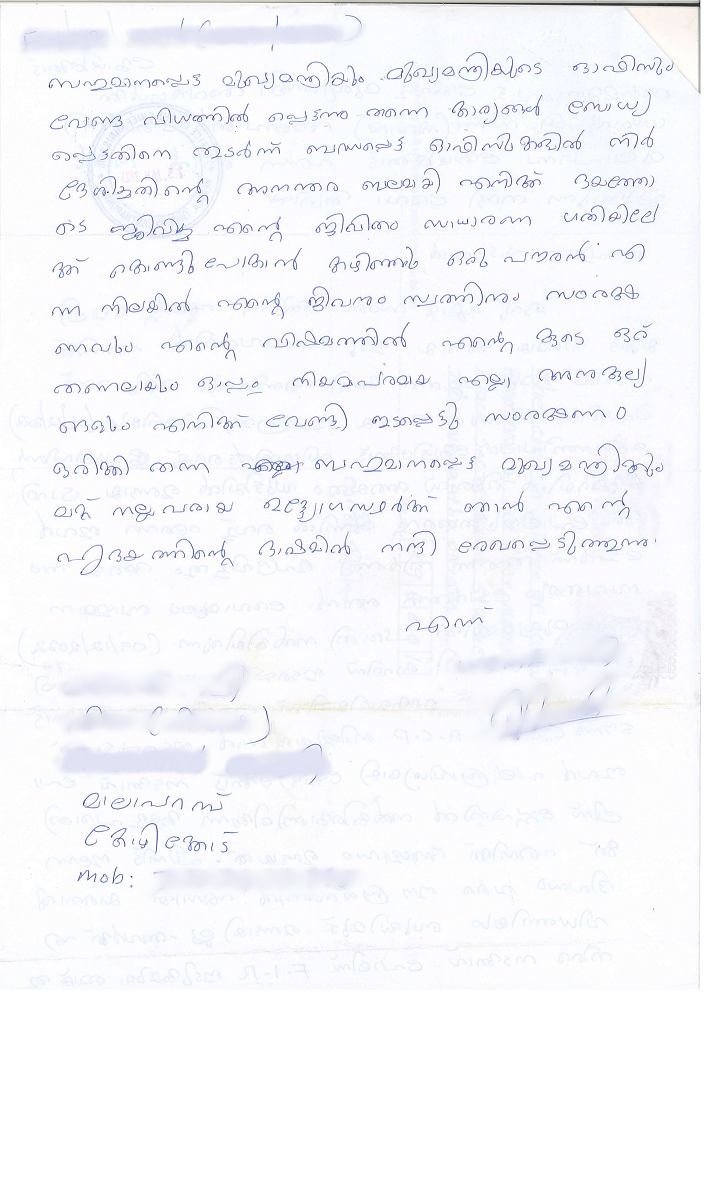 ബഹുമാനപ്പെട്ട മുഖ്യമന്ത്രിയും മുഖ്യമന്ത്രിയുടെ ഓഫിസും
വേണ്ട വിധത്തിൽ പ്പെടന്ന തന്നെ കാര്യങ്ങൾ ബോധ്യ
പ്പെട്ടതിനെ തുടർന്ന് ബന്ധപ്പെട്ട ഓഫിസുകളിൽ നിർ
ദ്ദേശിച്ചതിന്റെ അനന്തര ഫലമായി എനിക്ക് ഭയത്തോ
ടെ ജീവിച്ച എന്റെ ജീവിതം സാധാരണ ഗതിയിലേ
ക്ക് കൊണ്ടുപോകാൻ കഴിഞ്ഞു ഒരു പൗരൻ എ
ന്ന നിലയിൽ എന്റെ ജീവനും സ്വത്തിനും സംരക്ഷ
ണവും എന്റെ വിഷമത്തിൽ എന്റെ കൂടെ ഒരു
തണലായും ഒപ്പം നിയമപരമായ എല്ലാ അനുകൂല്യ
ങ്ങളും എനിക്ക് വേണ്ടി ഇടപ്പെട്ടു സംരക്ഷണം
ഒരിക്കി തന്ന ബഹുമാനപ്പെട്ട മുഖ്യമന്ത്രിക്കും
മറ്റ് നല്ലവരായ ഉദ്ദ്യോഗസ്ഥർക്ക് ഞാൻ എന്റെ
ഹൃദയത്തിന്റെ ഭാഷയിൽ നന്ദി രേഖപ്പെടുത്തുന്നു.
എന്ന്
മാലാപറമ്പ്
കോഴിക്കോട്
mob: